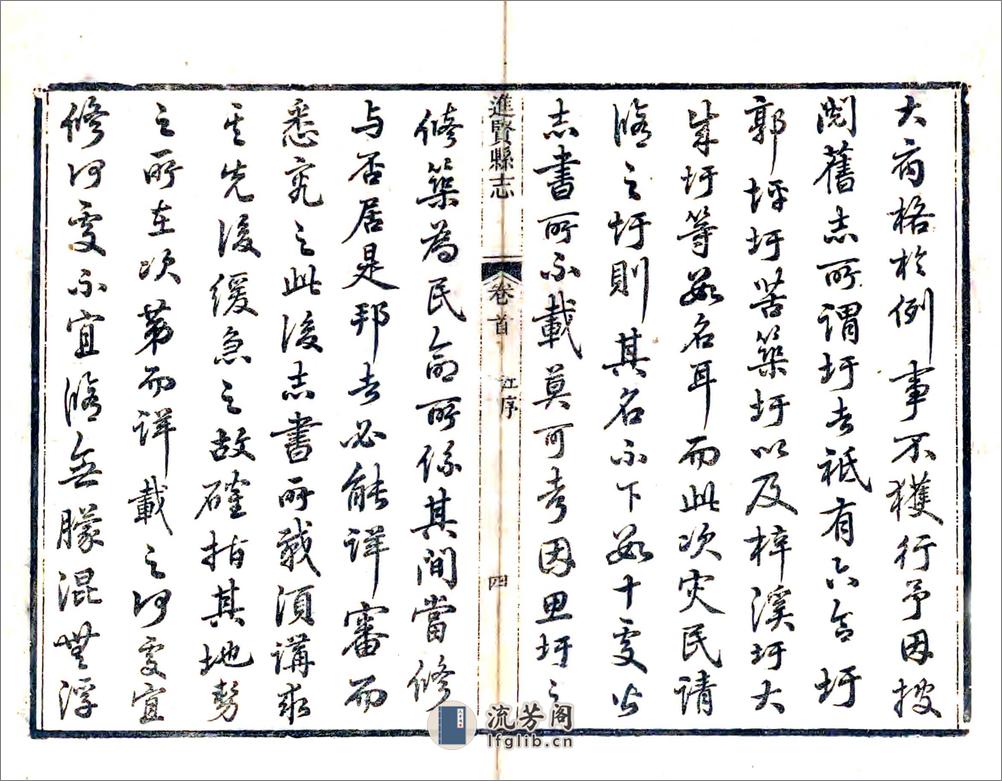 大府格於例事不獲行予因披
閱舊志所謂圩者祗有六合圩
郭坪圩苦築圩以及梓溪圩大
成圩等數名耳而此次灾民請
脩之圩則其名不下數十處皆
志書所不載莫可考因思圩之
進賢縣志
卷首
江序
四
修築為民命所係其間當修
与否居是邦者必能詳審而
悉究之此後志書所載須講求
其先後緩急之故確指其地勢
之所在次第而詳載之何處宜
修何處不宜脩無朦混無浮
流芳阁
lfglib.cn